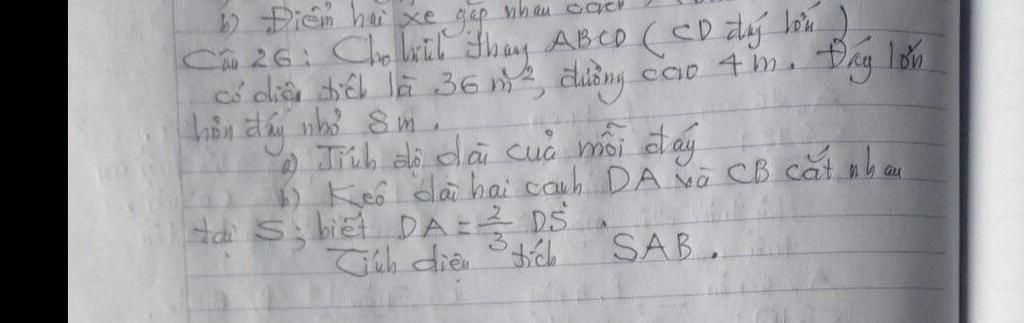 b) Điểm hai xe gặp nhau cách
Câu 26: Cho hình thang ABCD (CD đáy lớn)
có diện tích là 36 m², đường cao 4m. Đáy lớn
hơn đáy nhỏ 8m.
a) Tính độ dài của mỗi đáy
b) Kéo dài hai cạnh DA và CB cắt nhau
tại S; biết DA = 2/3 DS.
Tính diện tích SAB.